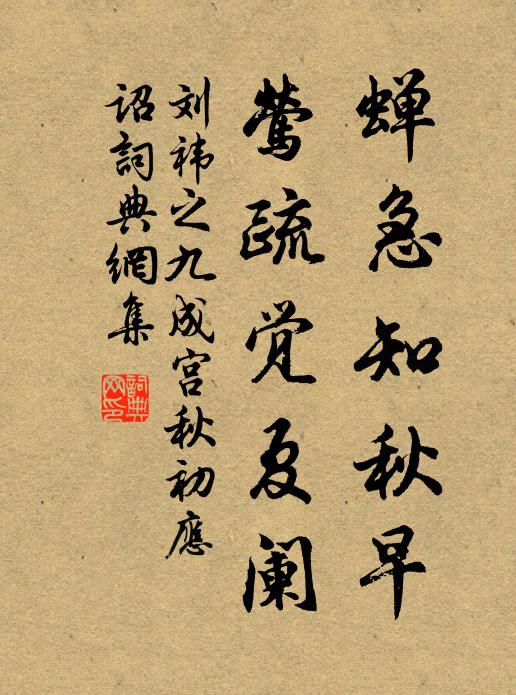 蝉急知秋早
莺疏觉夏阑
刘祎之九成宫秋初應
詔詞典網集
詞典网印